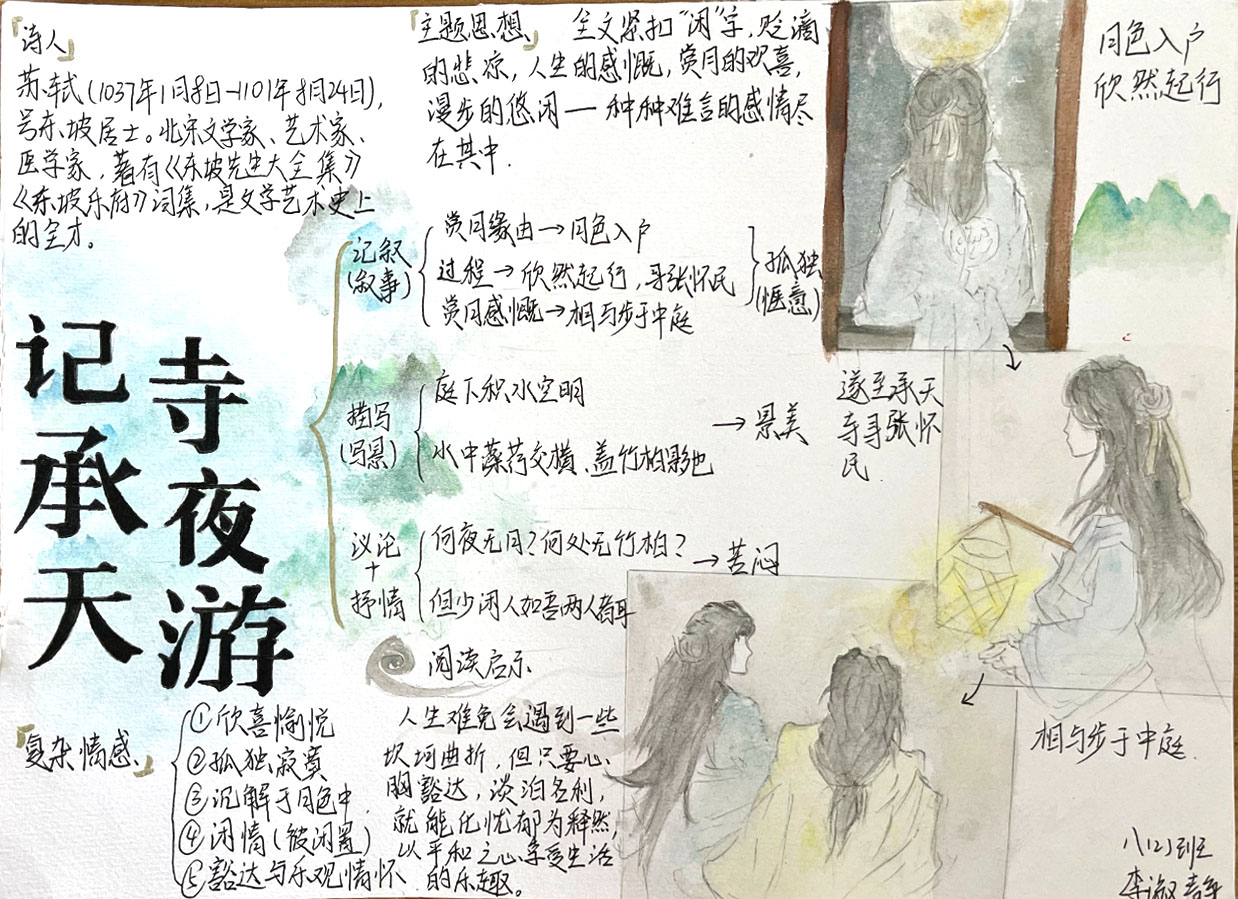 『诗人』
苏轼(1037年1月8日-1101年8月24日),
号东坡居士。北宋文学家、艺术家、
医学家,著有《东坡先生大全集》
《东坡乐府》词集,是文学艺术史上
的全才。
『主题思想』 全文紧扣"闲"字,贬谪
的悲凉,人生的感慨,赏月的欢喜,
漫步的悠闲一种种难言的感情尽
在其中.
月色入户
欣然起行
记承天
寺夜游
记叙
(叙事)
赏月缘由→月色入户
过程→欣然起行,寻张怀民
赏月感慨→相与步于中庭
孤独
(惬意)
描写
(写景)
庭下积水空明
水中藻荇交横、盖竹柏影也
→景美
议论
+
抒情
何夜无月?何处无竹柏?
但少闲人如吾两人者耳
→苦闷
遂至承天
寺寻张怀
民.
相与步于中庭.
『复杂情感』
①欣喜愉悦
②孤独寂寞
③沉解于月色中.
④闲情(被闲置)
⑤豁达与乐观情怀
阅读启示
人生难免会遇到一些
坎坷曲折,但只要心
胸豁达,淡泊名利,
就能化忧郁为释然,
以平和之心享受生活
的乐趣。
八(2)班
李淑